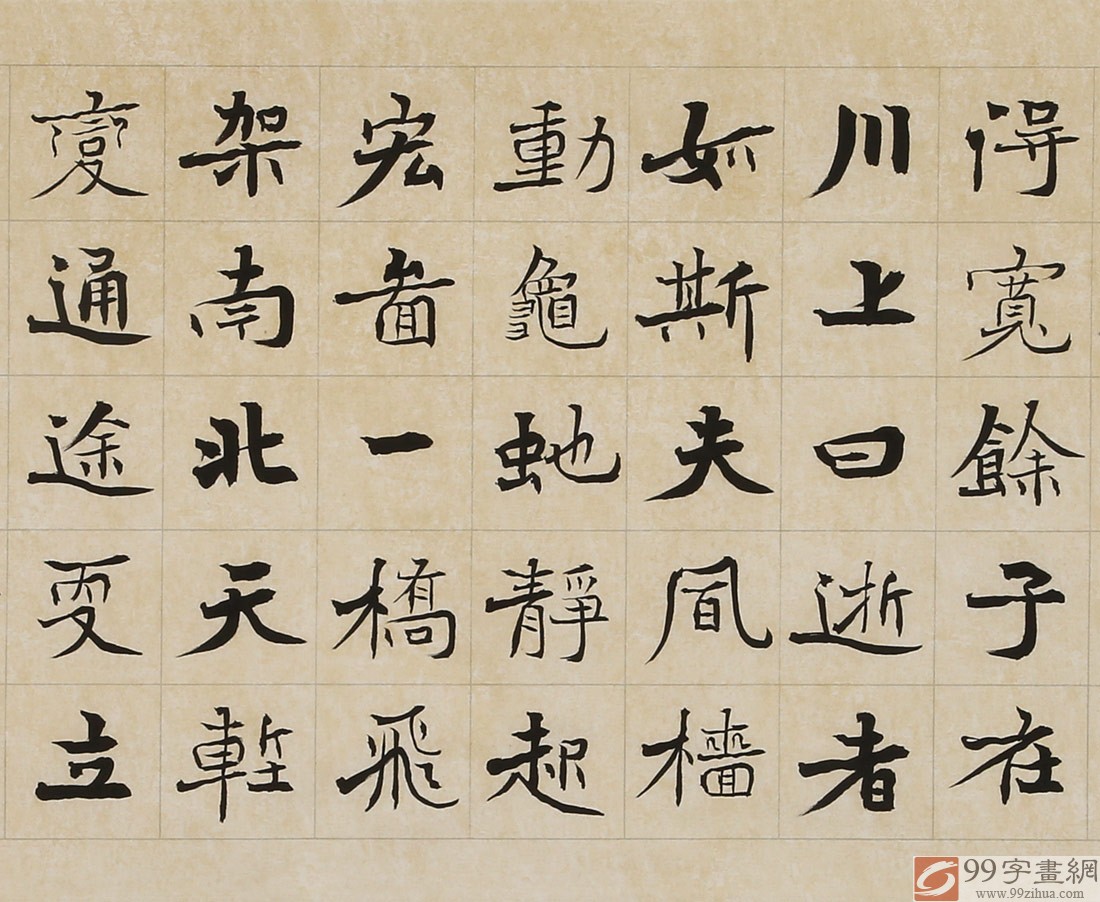 得寬餘子在
川上曰逝者
如斯夫風檣
動龜蛇靜起
宏啚一橋飛
架南北天塹
變通途更立
99字畫網
www.99zihua.com